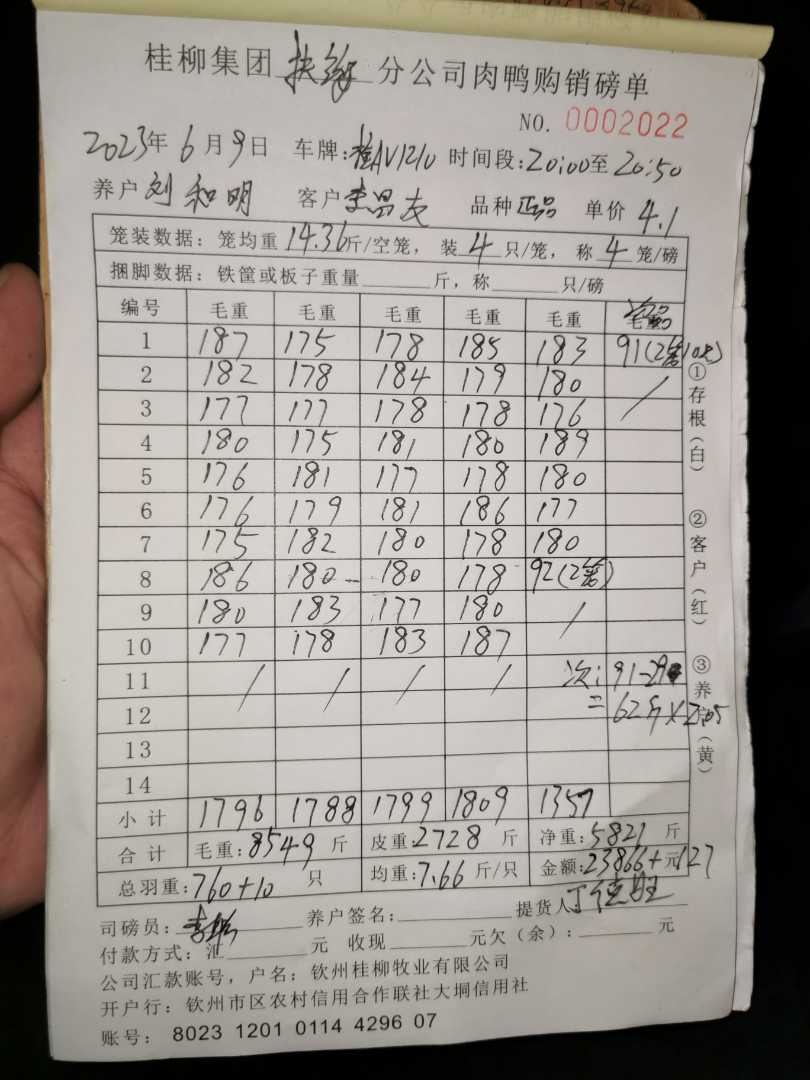 桂柳集团 扶绥 分公司肉鸭购销磅单
NO. 0002022
2023年 6月 9日 车牌:桂AV1210 时间段:20:00至 20:50
养户 刘和明 客户 李昌友 品种 正品 单价 4.1
笼装数据：笼均重 14.36 斤/空笼，装 4 只/笼，称 4 笼/磅
捆脚数据：铁筐或板子重量 斤，称 只/磅
编号 毛重 毛重 毛重 毛重 毛重 毛重
1 187 175 178 185 183 91(2笼10只)
2 182 178 184 179 180 /
3 177 177 178 178 176
4 180 175 181 180 189
5 176 181 177 178 180
6 176 179 181 186 177
7 175 182 180 178 180
8 186 180 180 178 92(2笼)
9 180 183 177 180 /
10 177 178 183 187
11 / / / / 次: 91-29
12 = 62斤×2.05
13
14
小计 1796 1788 1799 1809 1357
合计 毛重:8549 斤 皮重:2728 斤 净重:5821 斤
总羽重:760+10 只 均重:7.66 斤/只 金额:23866+元127
司磅员: 养户签名: 提货人
付款方式：汇 元 收现 元欠(余): 元
公司汇款账号，户名：钦州桂柳牧业有限公司
开户行：钦州市区农村信用合作联社大垌信用社
账号： 8023 1201 0114 4296 07
①存根(白) ②客户(红) ③养户(黄)